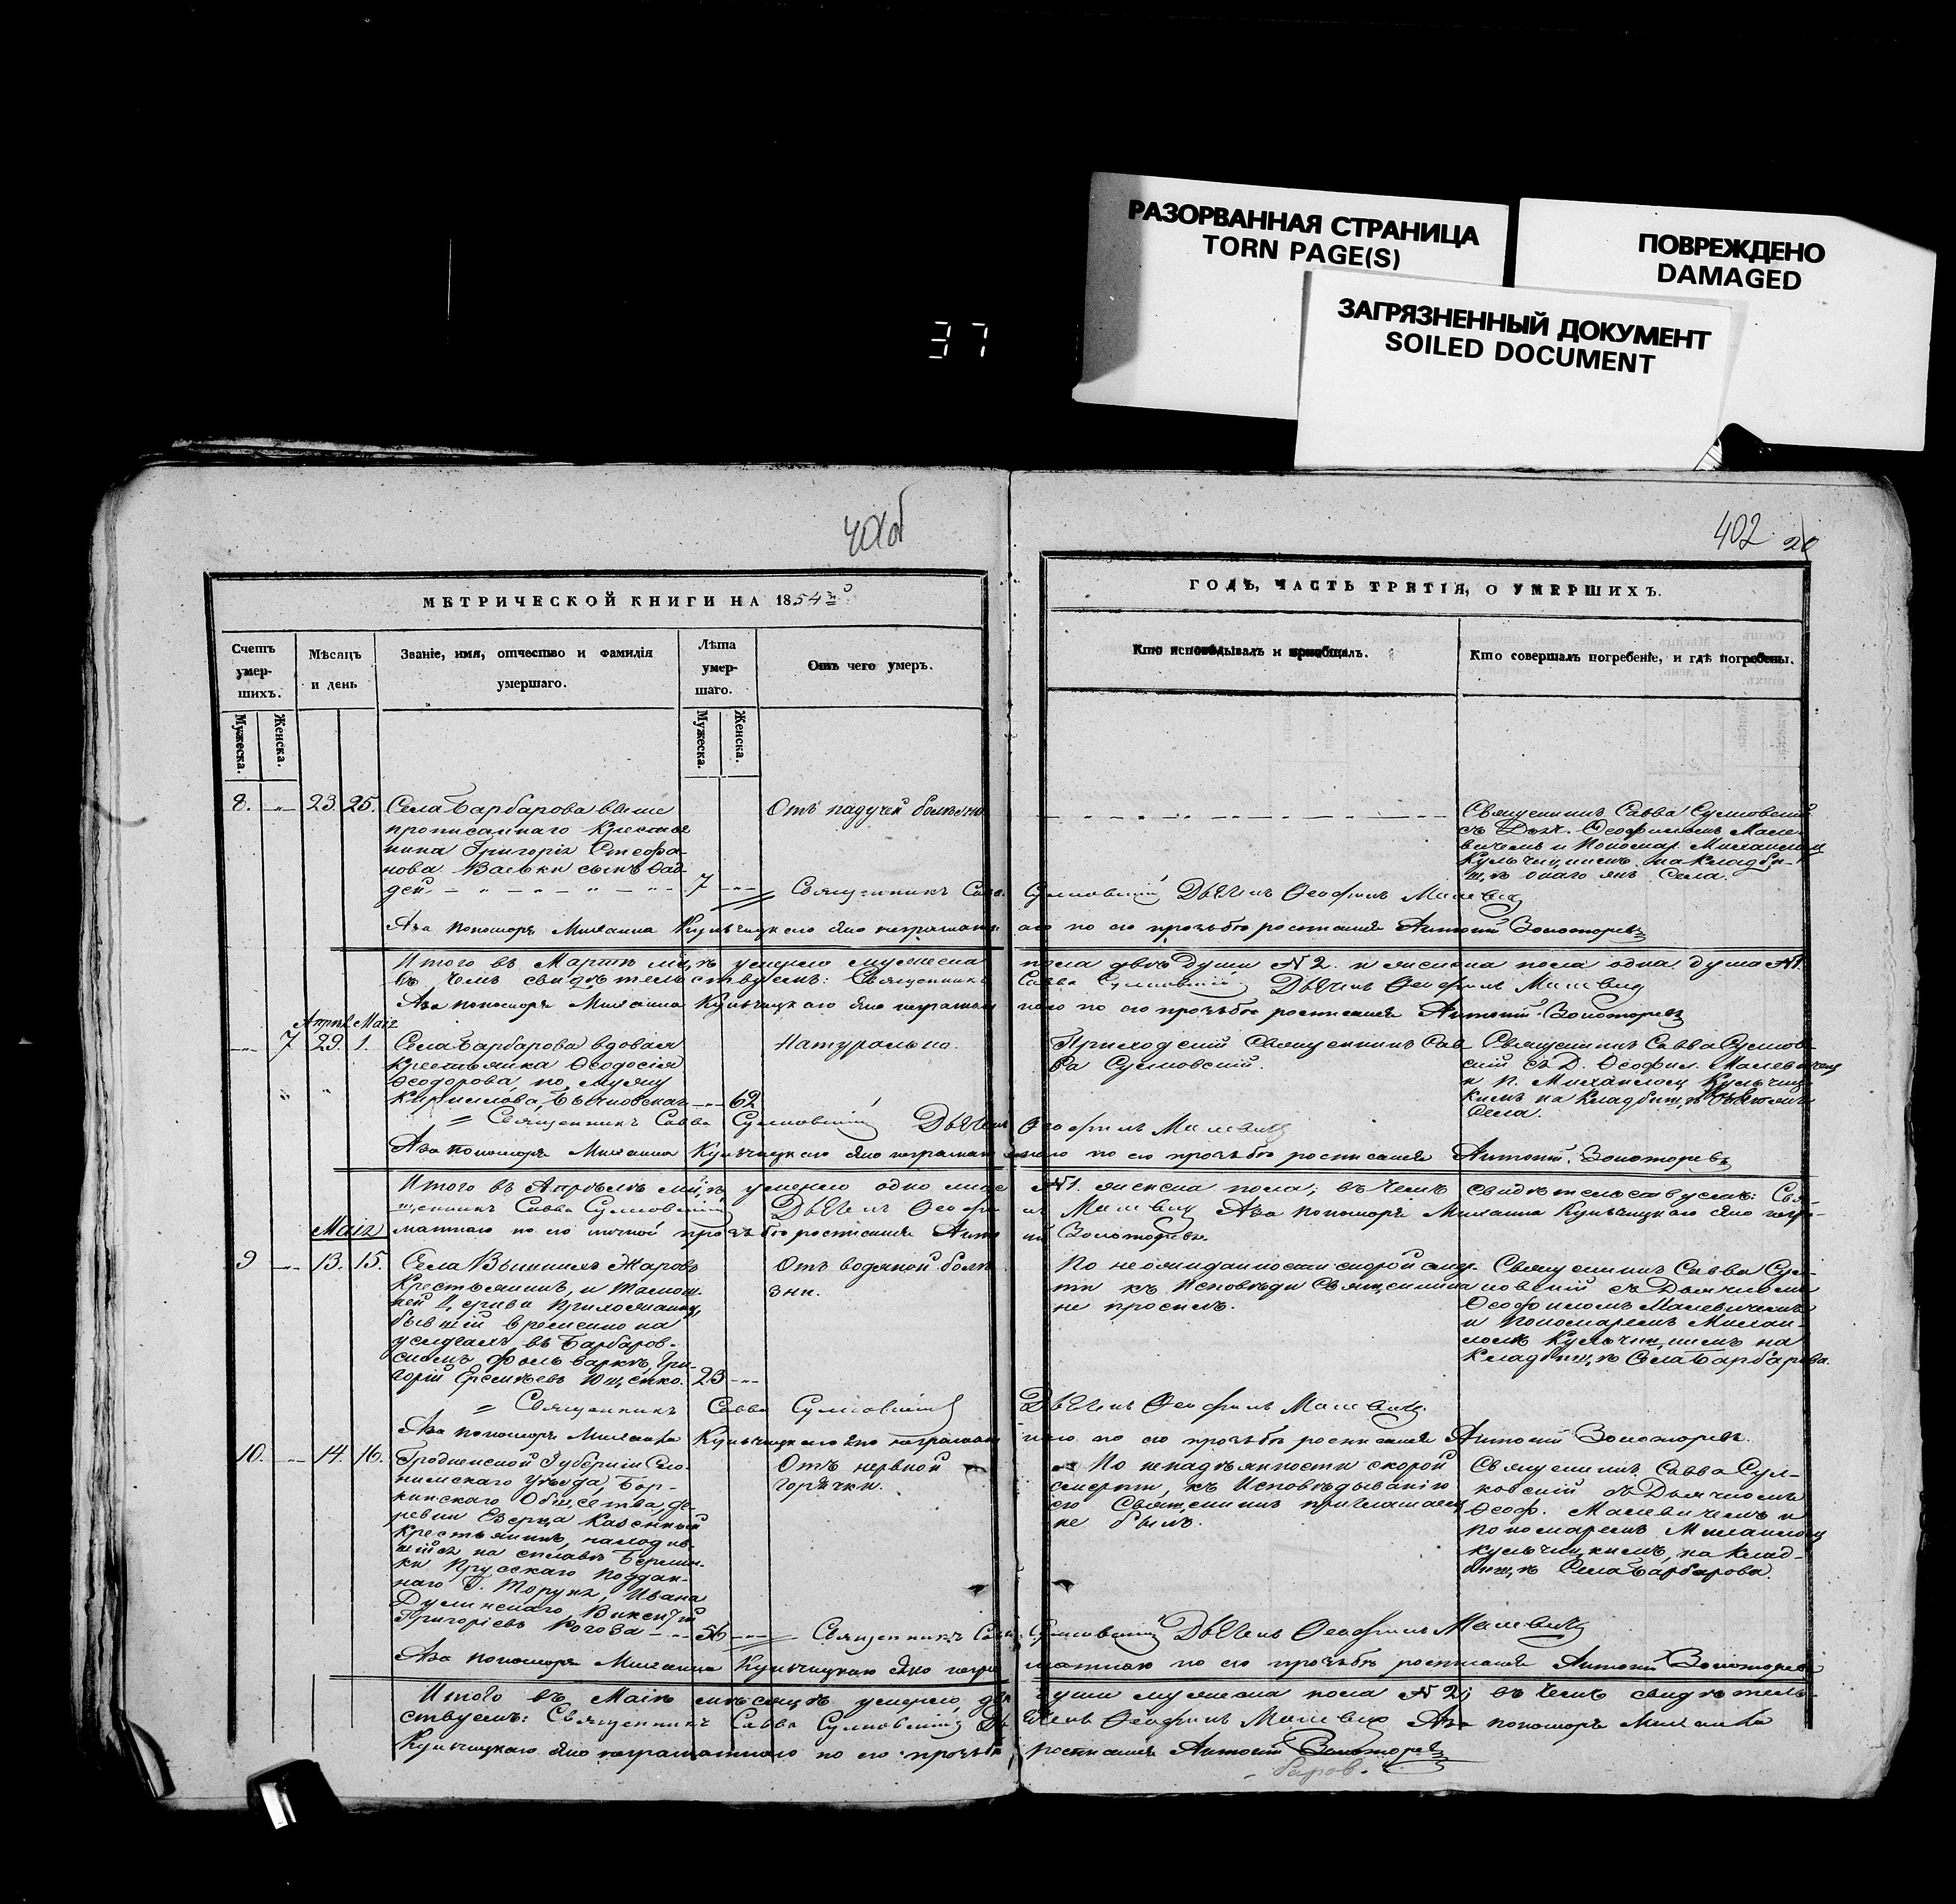 РАЗОРВАННАЯ СТРАНИЦА
TORN PAGE(S)
ПОВРЕЖДЕНО
DAMAGED
ЗАГРЯЗНЕННЫЙ ДОКУМЕНТ
SOILED DOCUMENT
37
402
МЕТРИЧЕСКОЙ КНИГИ НА 1854й
Счетъ умер-
шихъ.
Мужеска.
Женска.
Мѣсяцъ
и день
Званіе, имя, отчество и фамилія
умершаго.
Лѣта
умер-
шаго.
Мужеска.
Женска.
Отъ чего умеръ.
ГОДЪ, ЧАСТЬ ТРЕТІЯ, О УМЕРШИХЪ.
Кто исповѣдывалъ и пріобщалъ.
Кто совершалъ погребеніе, и гдѣ погребены.
8. 23. 25.
Села Барбарова выше
прописаннаго Крестья
нина Григорія Стефа-
нова Вальки сынъ Фад-
дей 7
Отъ падучей болезни
Священникъ Савва Сулковскій
съ Дьяч. Ѳеофиломъ Мале-
вичемъ и Пономар. Михаиломъ
Кульчицкимъ на кладби-
щѣ онаго же села.
Священникъ Савва Сулковскій Дьячекъ Ѳеофилъ Малевичъ
За пономаря Михаила Кульчицкаго яко неграмотнаго по его прозьбѣ росписался Антоній Золоторевъ
Итого въ Мартѣ м-цѣ умерло мужеска пола двѣ души №2. и женска пола одна душа №1.
въ чемъ свидѣтельствуемъ: Священникъ Савва Сулковскій Дьячекъ Ѳеофилъ Малевичъ
За пономаря Михаила Кульчицкаго яко неграмотнаго по его прозьбѣ росписался Антоній Золоторевъ
Апрѣл. Маія
7 29. 1.
Села Барбарова вдовая
крестьянка Ѳеодосія
Ѳеодорова, по мужу
Кириллова, 62
Натурально.
Приходскій Священникъ Сав
ва Сулковскій.
Священникъ Савва Сулков-
скій съ Д. Ѳеофил. Малевичемъ
и П. Михаиломъ Кульчиц-
кимъ на кладбищѣ
села.
Священникъ Савва Сулковскій Дьячекъ Ѳеофилъ Малевичъ
За пономаря Михаила Кульчицкаго яко неграмотнаго по его прозьбѣ росписался Антоній Золоторевъ
Итого въ Апрѣлѣ м-цѣ умерло одно лице №1. женска пола; въ чемъ свидѣтельствуемъ: Свя-
щенникъ Савва Сулковскій Дьячекъ Ѳеофилъ Малевичъ За пономаря Михаила Кульчицкаго яко негра-
мотнаго по его личной прозьбѣ росписался Антоній Золоторевъ
Маія
9 13. 15.
Села Вышнихъ Жаровъ
Крестьянинъ, и тамош-
ней Церкви прихожанинъ,
бывшій временно на
услугахъ въ Барбаров-
скомъ фольваркѣ, Гри-
горій Ереміевъ Ющенко. 23
Отъ водяной болѣ-
зни.
По неожиданности скорой смер-
ти къ исповѣди Священника
не просилъ.
Священникъ Савва Сул-
ковскій съ Дьячкомъ
Ѳеофиломъ Малевичемъ
и Пономаремъ Михаи-
ломъ Кульчицкимъ на
кладбищѣ Села Барбарова.
Священникъ Савва Сулковскій Дьячекъ Ѳеофилъ Малевичъ
За пономаря Михаила Кульчицкаго яко неграмотнаго по его прозьбѣ росписался Антоній Золоторевъ.
10. 14. 16.
Гродненской Губерніи Сло-
нимскаго Уѣзда,
Общества, де-
ревни Езерца Казенный
Крестьянинъ, находив-
шійся на сплавѣ Берлин-
ки Прусскаго поддан-
наго Г. Торуня, Ивана
Викентій
Григоріевъ Рогова 56
Отъ нервной
горячки.
По ненадѣянности скорой
смерти, къ исповѣдыванію
его Священникъ приглашаемъ
не былъ.
Священникъ Савва Сул-
ковскій съ Дьячкомъ
Ѳеоф. Малевичемъ и
пономаремъ Михаиломъ
Кульчицкимъ, на клад-
бищѣ Села Барбарова.
Священникъ Савва Сулковскій Дьячекъ Ѳеофилъ Малевичъ
За пономаря Михаила Кульчицкаго яко неграмотнаго по его прозьбѣ росписался Антоній Золоторевъ
Итого въ Маіѣ мѣсяцѣ умерло двѣ души мужеска пола №2; въ чемъ свидѣтель-
ствуемъ: Священникъ Савва Сулковскій Дьячекъ Ѳеофилъ Малевичъ За пономаря Михаила
Кульчицкаго яко неграмотнаго по его прозьбѣ росписался Антоній Золоторевъ